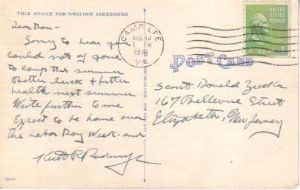 THIS SPACE FOR WRITING MESSAGES
Dear Don -
Sorry to hear you
could not of gone
to camp this summer.
Better luck & better
health next summer
Write further time
Expect to be home over
the Labor Day Week-end
CAMP LEE
VA.
POST CARD
Scout Donald
167 Bellevue Street
Elizabeth, New Jersey